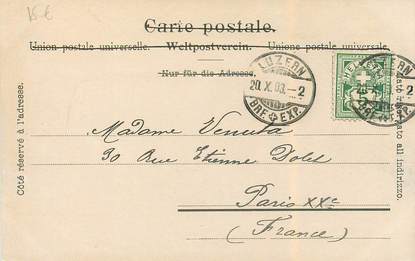 15 €
Carte postale.
Union postale universelle. — Weltpostverein. — Unione postale universale.
Nur für die Adresse.
LUZERN
20. X. 03. — 2
BRF. EXP.
HELVETIA
2
EXP.
Côté réservé à l'adresse.
Lato riservato all indirizzo.
Madame Venuta
90 Rue Etienne Dolet
Paris XXe
(France)